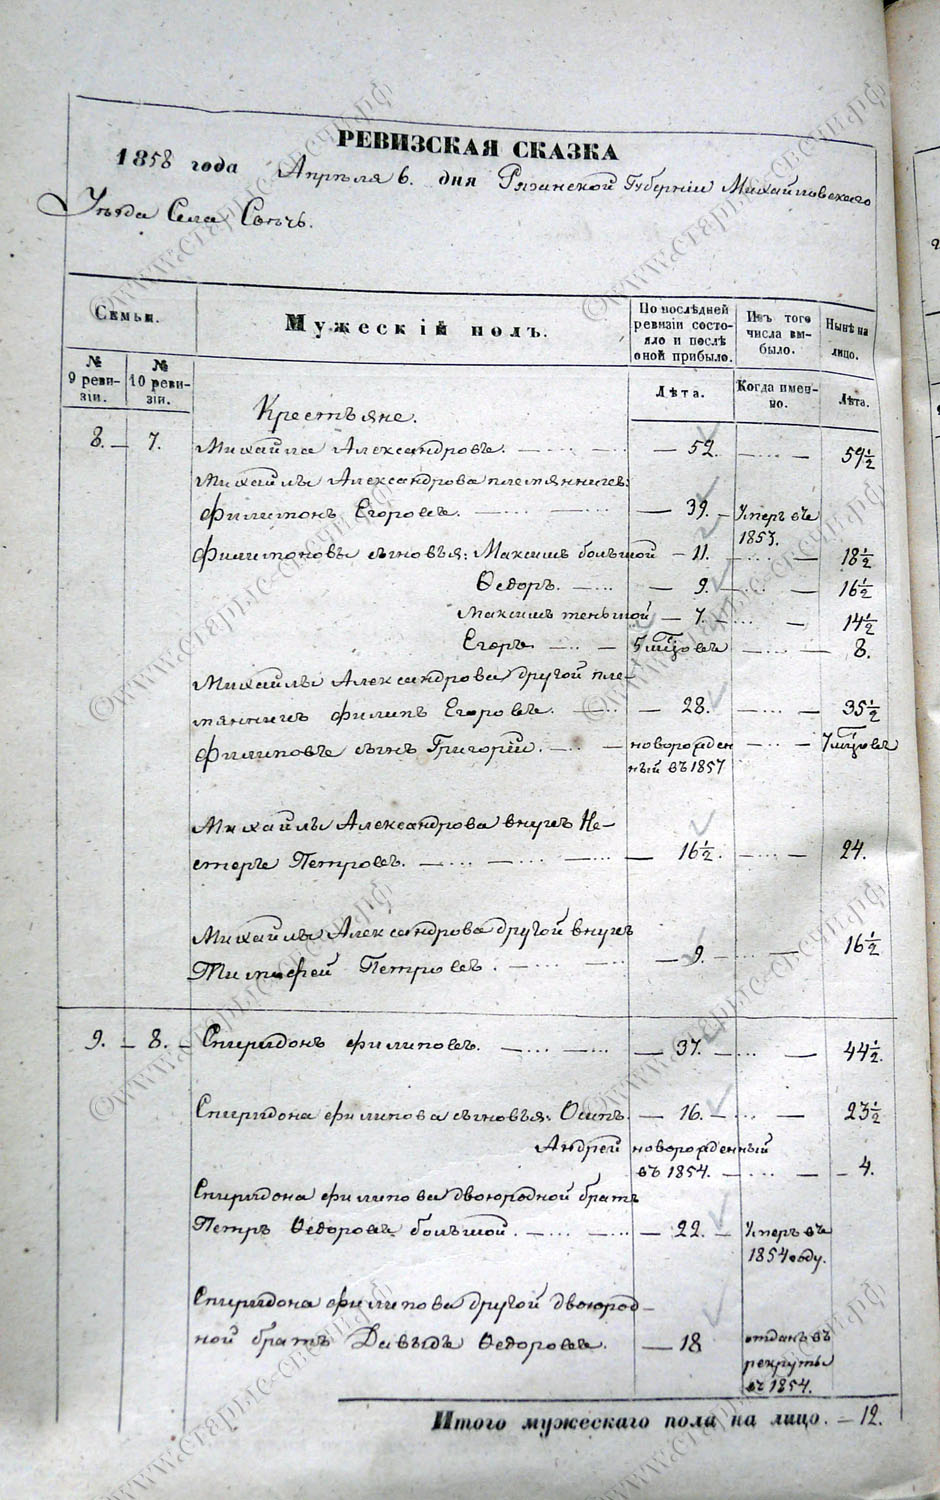 РЕВИЗСКАЯ СКАЗКА
1858 года Апрѣля 6. дня Рязанской Губерніи Михайловскаго
Уѣзда Села Свѣчь.
Семьи.
Мужескій полъ.
По послѣдней ревизіи состояло и послѣ оной прибыло.
Изъ того числа выбыло.
Нынѣ на лицо.
№ 9 ревизіи.
№ 10 ревизіи.
Лѣта.
Когда именно.
Лѣта.
Крестьяне.
8. — 7. Михайла Александровъ. — 52. — 59½
Михайлы Александрова племянникъ:
Филимонъ Егоровъ. — 39. — Умеръ въ 1853.
Филимоновы сыновья: Максимъ большой — 11. — 18½
Ѳедоръ. — 9. — 16½
Максимъ меньшой — 7. — 14½
Егоръ — 5 мцовъ — 8.
Михайлы Александрова другой пле-
мянникъ Филипъ Егоровъ. — 28. — 35½
Филиповъ сынъ Григорій. — новорожденный въ 1857 — 7 мцовъ
Михайлы Александрова внукъ Не-
стеръ Петровъ. — 16½. — 24.
Михайлы Александрова другой внукъ
Тимофей Петровъ. — 9. — 16½
9. — 8. — Спиридонъ Филиповъ. — 37. — 44½.
Спиридона Филипова сыновья: Осипъ. — 16. — 23½
Андрей новорожденный
въ 1854. — 4.
Спиридона Филипова двоюродной братъ
Петръ Ѳедоровъ большой. — 22. — Умеръ въ 1854 году.
Спиридона Филипова другой двоюрод-
ной братъ Давыдъ Ѳедоровъ. — 18 отданъ въ рекруты въ 1854.
Итого мужескаго пола на лицо. — 12.
©www.старые-свечи.рф